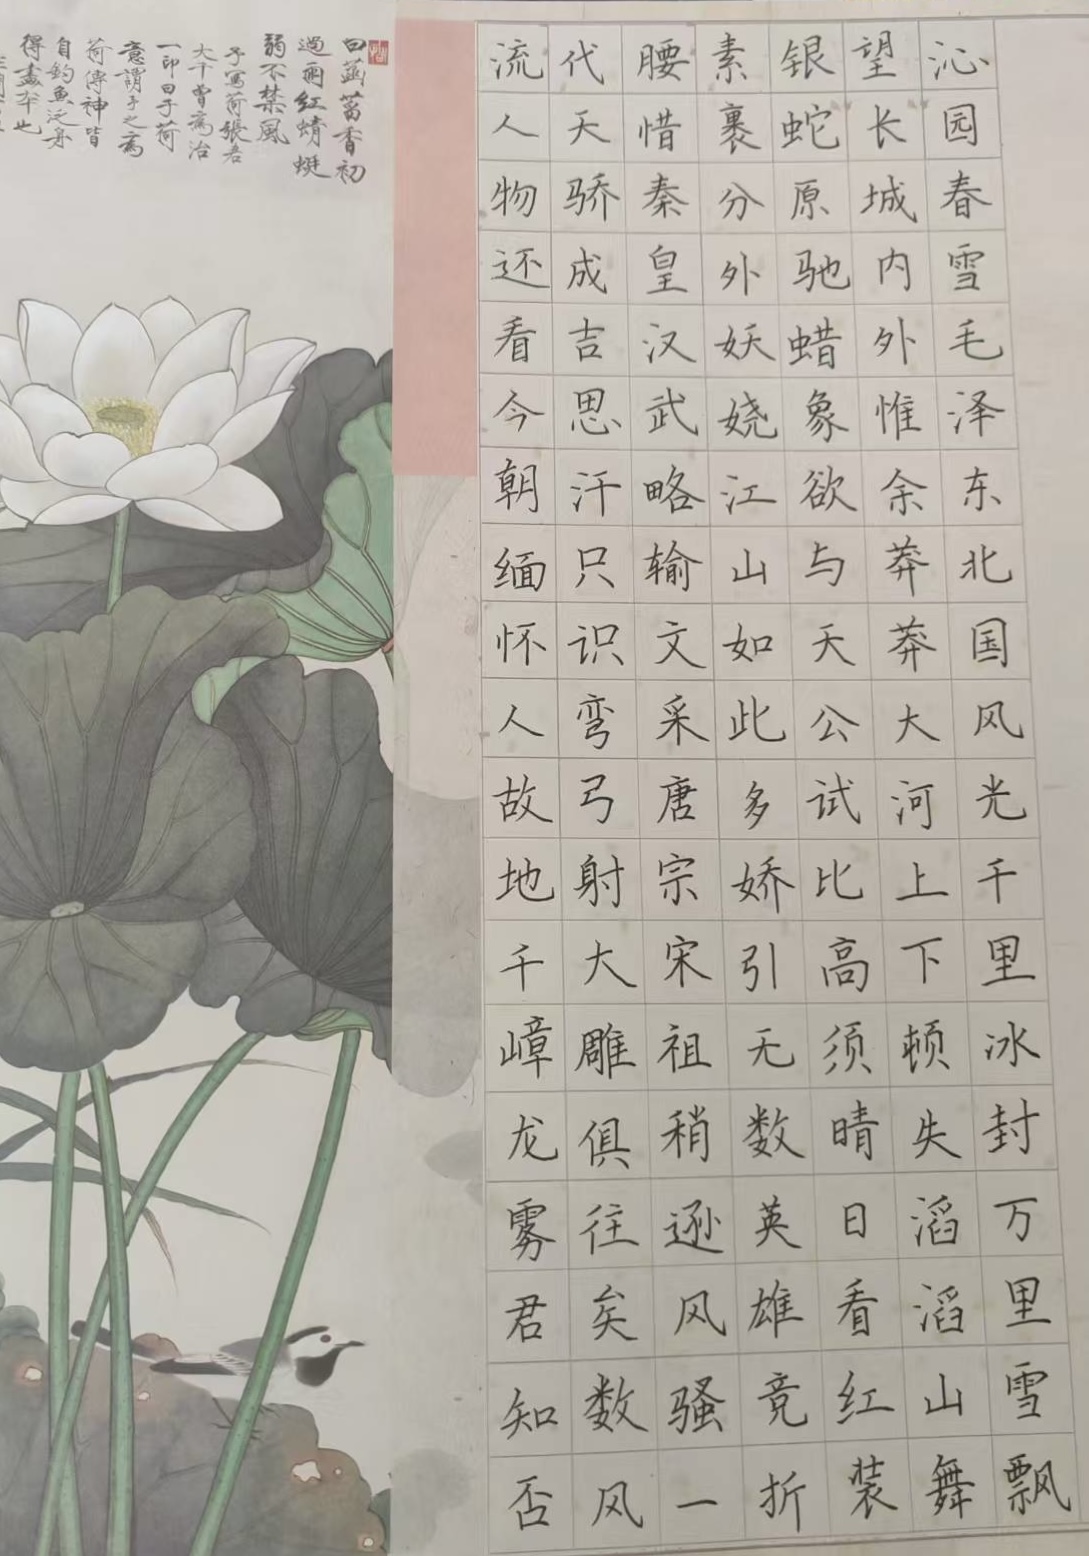 沁园春雪毛泽东北国风光千里冰封万里雪飘
望长城内外惟余莽莽大河上下顿失滔滔山舞
银蛇原驰蜡象欲与天公试比高须晴日看红装
素裹分外妖娆江山如此多娇引无数英雄竞折
腰惜秦皇汉武略输文采唐宗宋祖稍逊风骚一
代天骄成吉思汗只识弯弓射大雕俱往矣数风
流人物还看今朝缅怀人故地千嶂龙雾君知否
曰菡萏香初
過雨紅蜻蜓
弱不禁風
予寫荷張君
大千曾為治
一印曰予荷
意謂予之為
荷傳神皆
自釣魚泛舟
得畫本也